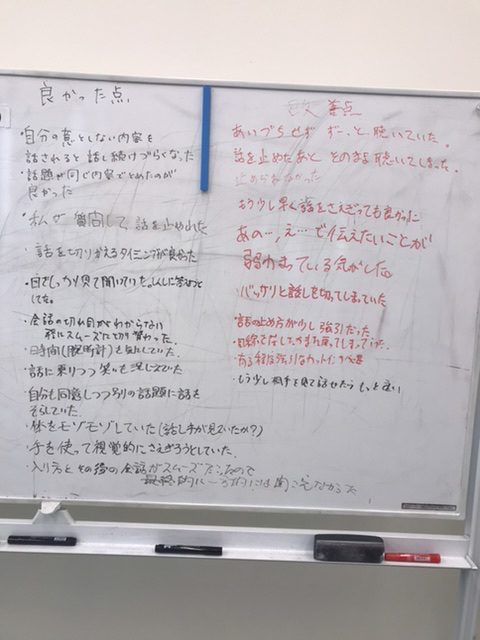 良かった点
・自分の意としない内容を
話されると話し続けづらくなった
・話題が同じ内容でとめたのが
良かった
・私が質問して話を止められた
・話を切りかえるタイミングが良かった
・目でしっかり見て聞いていた。
・会話の切れ目がわからない
程にスムーズに切り替わった。
・日時向(腕時計)を気にしていた
・話に乗りつつ笑いを混じえていた
・自分も同意しつつ別の話題に話を
そらしていた。
・体をモゾモゾしていた(話し手が見ていたか?)
・手を使って視覚的にさえぎろうとしていた。
・入り方とその後の会話がスムーズだったので
最終的に一方的には聞こえなかった
改善点
あいづちせず ずーっと聴いていた。
話を止めたあと そのまま聴いてしまった。
止められなかった
もう少し早く話をさえぎっても良かった
あの…、え…で伝えたいことが
弱わまっている気がした
・バッサリと話しを切ってしまっていた
・話の止め方が少し強引だった
・ある程度強引なカットインが必要
・もう少し相手を見て話せたら もっと良い